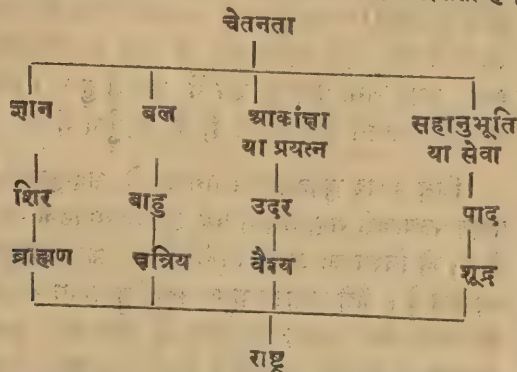 चेतनता
ज्ञान बल आकांक्षा सहानुभूति
या प्रयत्न या सेवा
शिर बाहु उदर पाद
ब्राह्मण क्षत्रिय वैश्य शूद्र
राष्ट्र